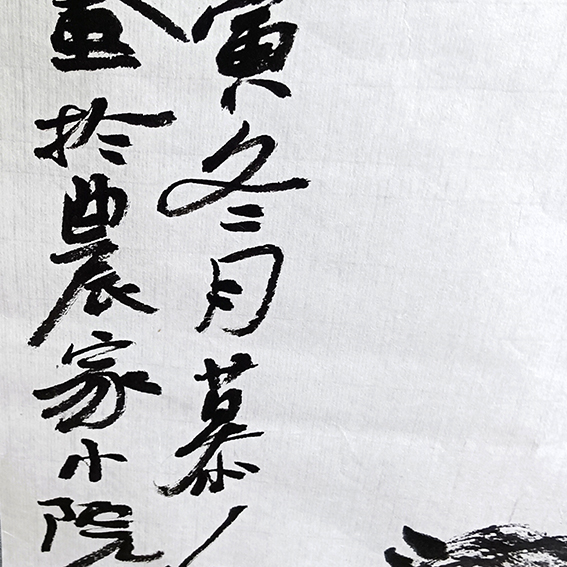 寅冬月慕
於農家小院